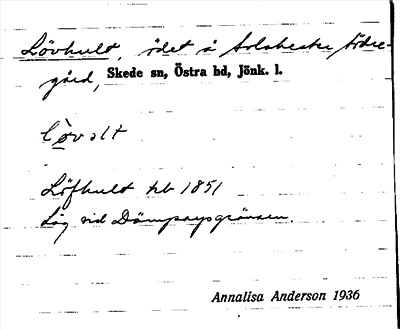 Lövhult, ödet å Solaberke Södre-
gård, Skede sn, Östra bd, Jönk. l.
lövɔlt
Löfhult hb 1851
Låg vid Dämpaysgränsen.
Annalisa Anderson 1936